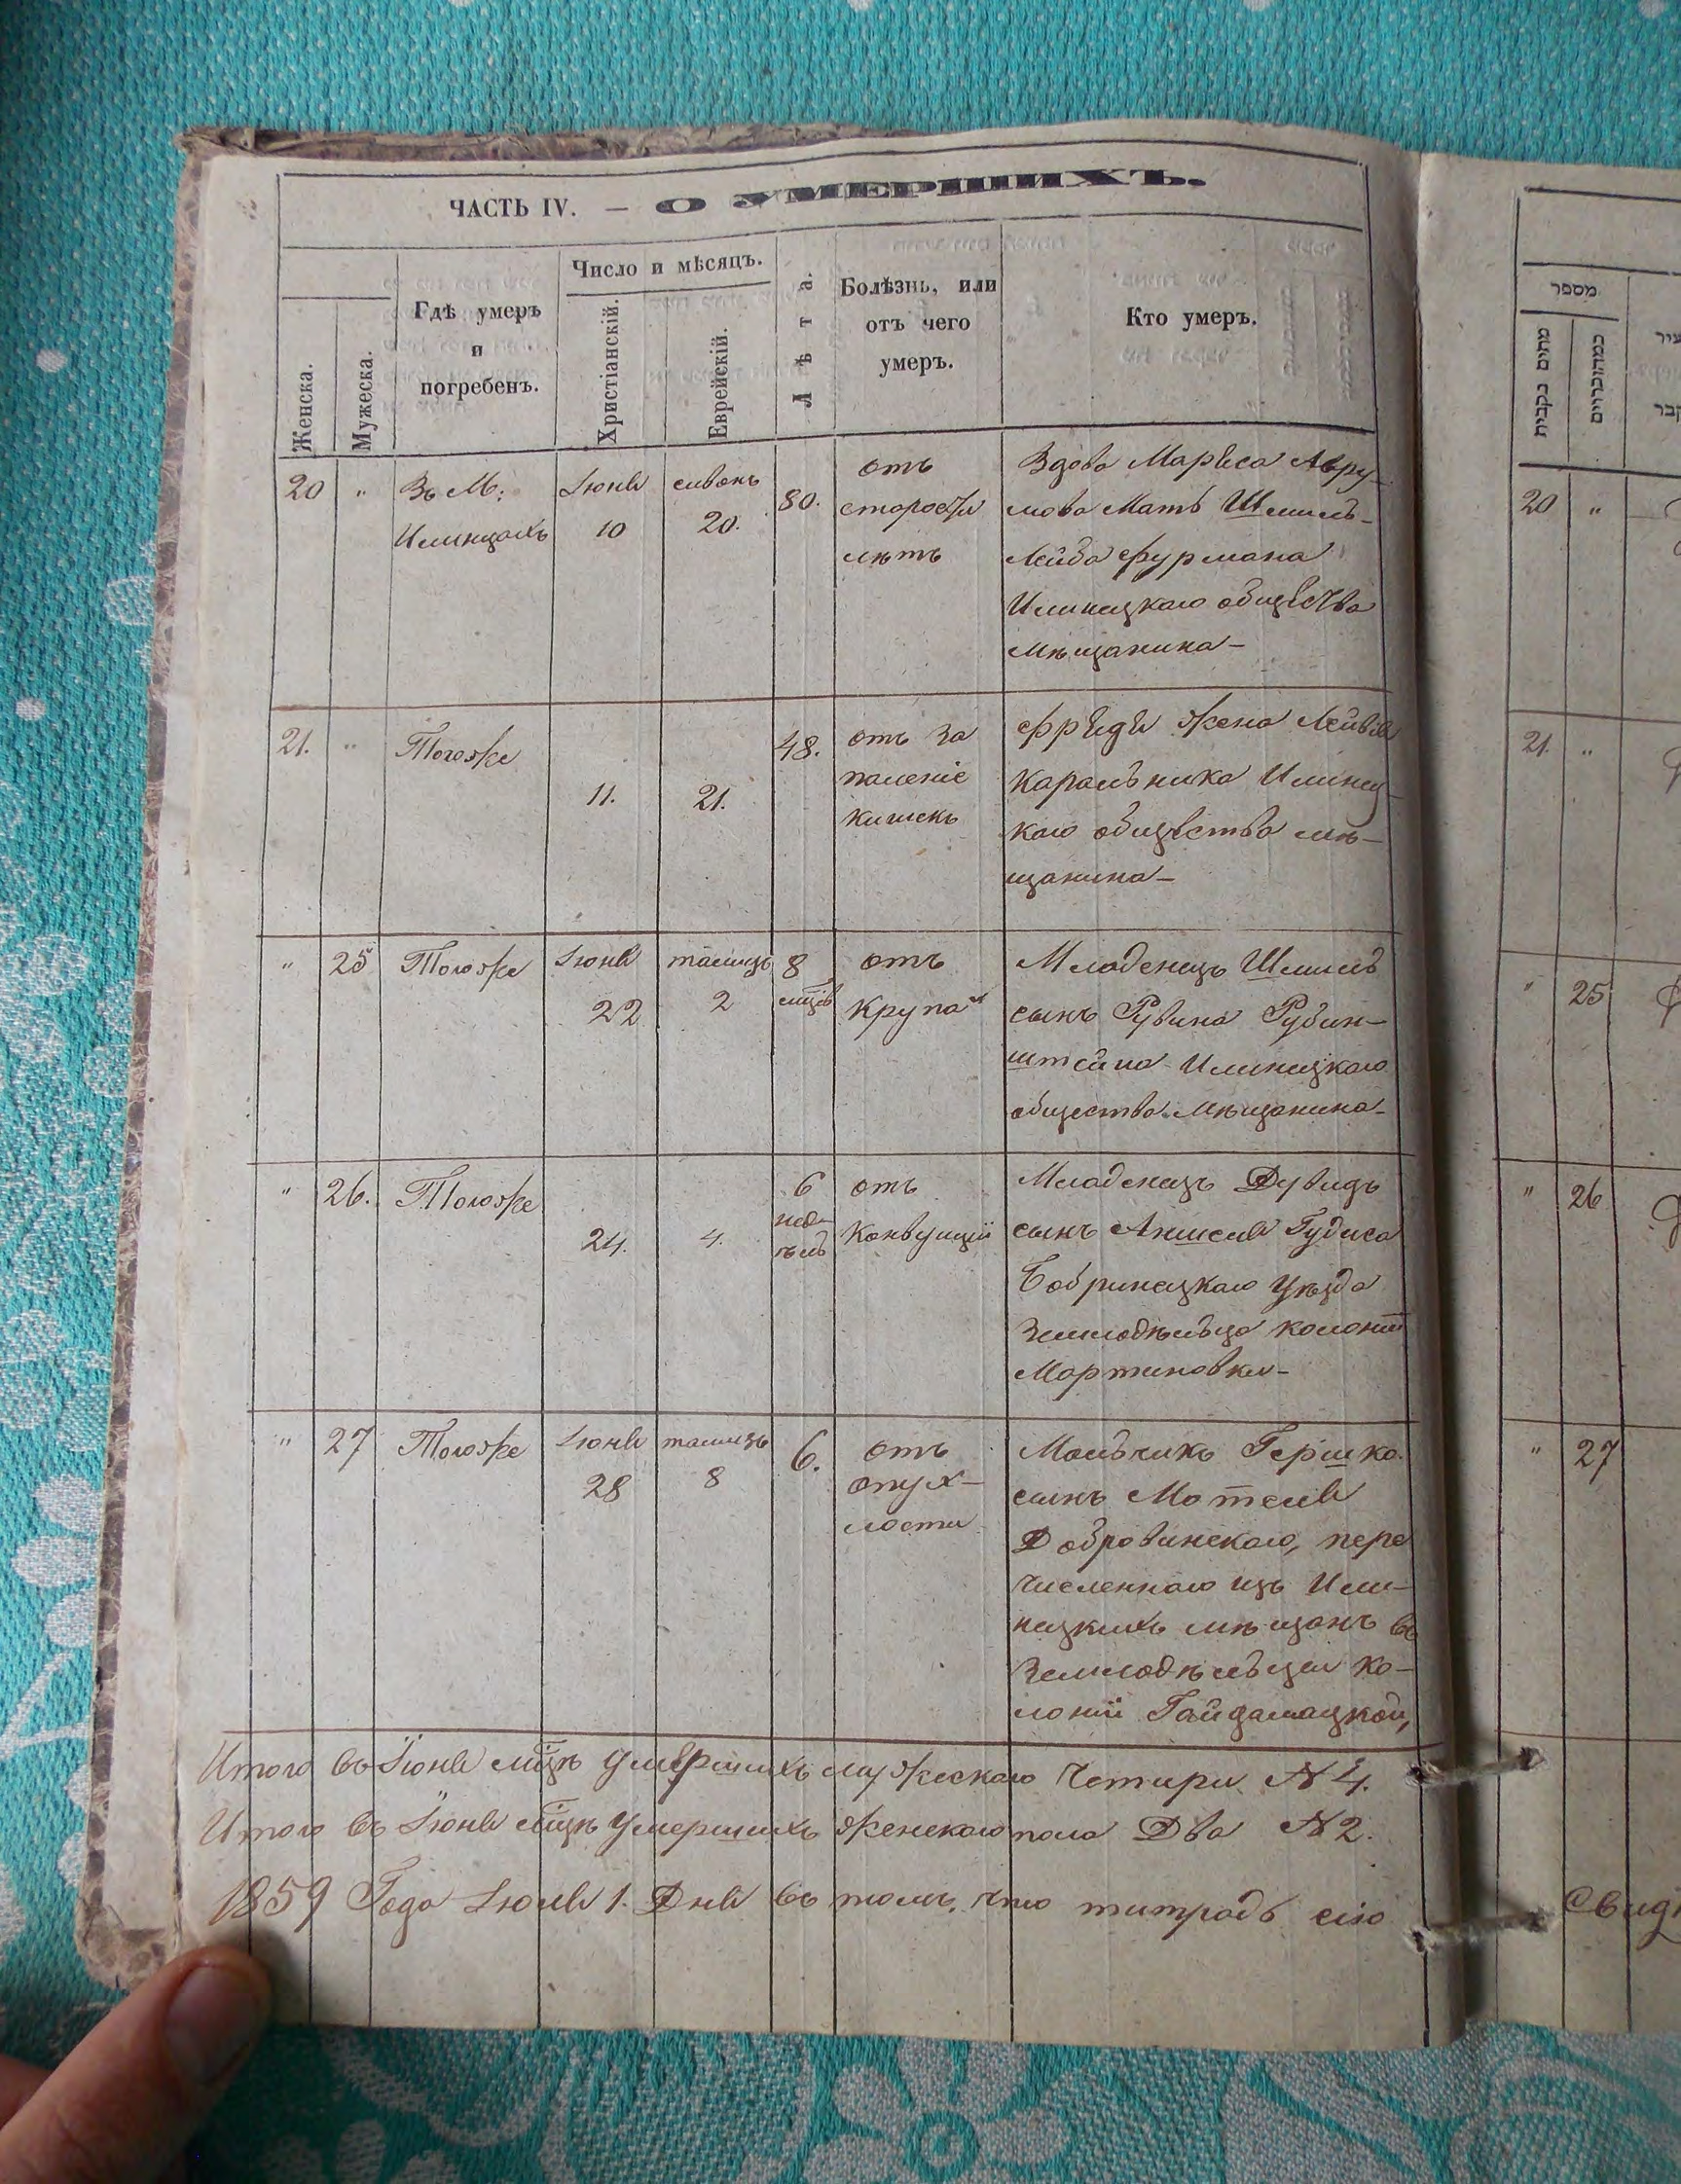 ЧАСТЬ IV. — О УМЕРШИХЪ.
Женска.
Мужеска.
Гдѣ умеръ
и
погребенъ.
Число и мѣсяцъ.
Христіанскій.
Еврейскій.
Лѣта.
Болѣзнь, или
отъ чего
умеръ.
Кто умеръ.
20 " Въ М:
Илинцахъ
Іюня
10
сивонъ
20.
80.
отъ
старости
лѣтъ
Вдова Маріяса Авру-
мова Мать Шмиль-
Лейба Фурмана
Илинецкаго общества
мѣщанина-
21. " Тогоже
11.
21.
48.
отъ за
паленіе
кишекъ
Фрейди жена Лейвія
Каральника Илинец-
каго общества мѣ-
щанина-
" 25 Тогоже
Іюня
22
тамизъ
2
8
мцѣв
отъ
крупа
Младенецъ Шмиль
сынъ Рувина Рубин-
штейна Илинецкаго
общества мѣщанина-
" 26. Тогоже
24.
4.
6
неде-
ль
отъ
Конвулціи
Младенецъ Дувидъ
сынъ Аншеля Гудиса
Бобринецкаго Уѣзда
Земледѣльца колоніи
Мартиновки-
" 27 Тогоже
Іюня
28
тамизъ
8
6.
отъ
опух-
лости
Мальчикъ Гершко
сынъ Мотеля
Добровинскаго, пере
численнаго изъ Или-
нецкихъ мѣщанъ въ
Земледѣльци ко-
лоніи Гайдамацкой,
Итого въ Іюня мцѣ Умершихъ мужескаго Четири № 4.
Итого въ Іюня мцѣ Умершихъ женскаго пола Два № 2.
1859 Года Іюля 1. Дня въ томъ, что титрадь сію
מספר
20 "
21. "
" 25
" 26
" 27